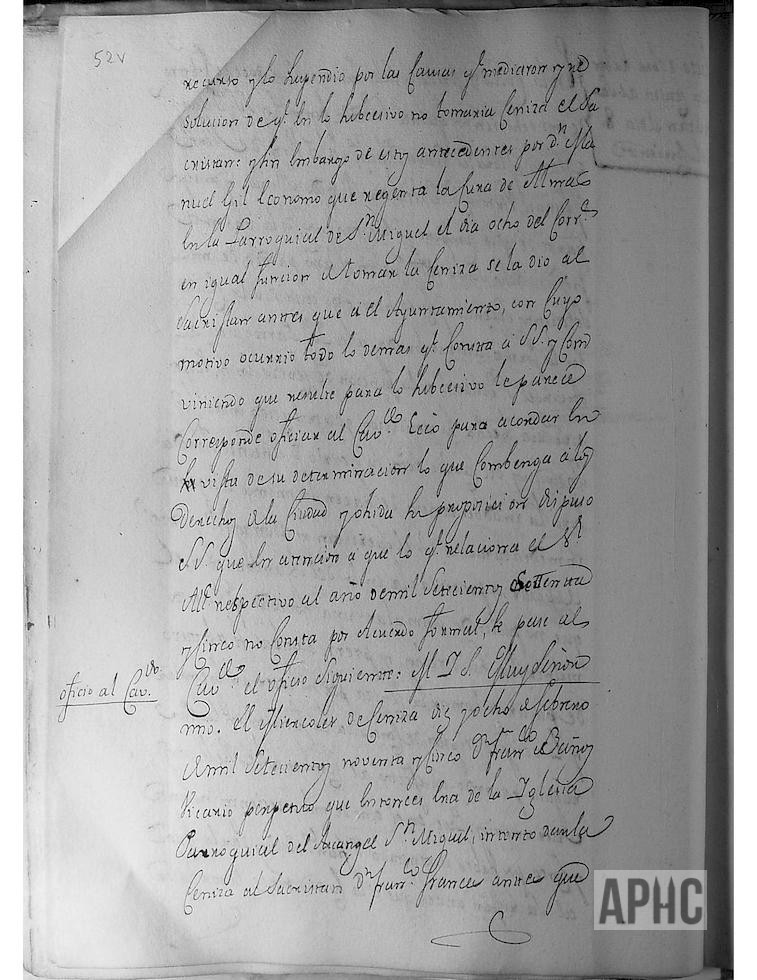 52v
recurso y lo suspendio por las Causas q.e mediaron y re
solucion de q.e en lo subcesivo no tomaria Ceniza el Sa
cristan: y sin embargo de estos antecedentes por d.n Ma
nuel Gil Economo que regenta la Cura de Almas
en la Parroquial de S.n Miguel el dia ocho del Corr.e
en igual funcion de tomar la Ceniza se la dio al
Sacristan antes que a el Ayuntamiento, con Cuyo
motivo ocurrio todo lo demas q.e Consta a SS. y Com
viniendo que resulte para lo subcesivo le parece
Corresponde oficiar al Cav.do Ecco para acordar en
vista de su determinacion lo que Combenga a los
Derechos de la Ciudad y ohida su proposicion dispuso
SS. que en atencion a que lo q.e relaciona el S.r
Alc.e respectivo al año de mil Setecientos Setenta
y Cinco no Consta por Acuerdo formal, se pase al
oficio al Cav.do
Cav.do el oficio siguiente: M I S. Muy Señor
mio. El Miercoles de Ceniza diez y ocho de Febrero
de mil Setecientos noventa y Cinco D.n Fran.co de Baños
Vicario perpetuo que entonces era de la Iglesia
Parroquial del Arcangel S.n Miguel, intento dar la
Ceniza al Sacristan D.n fran.co frances antes que
APHC